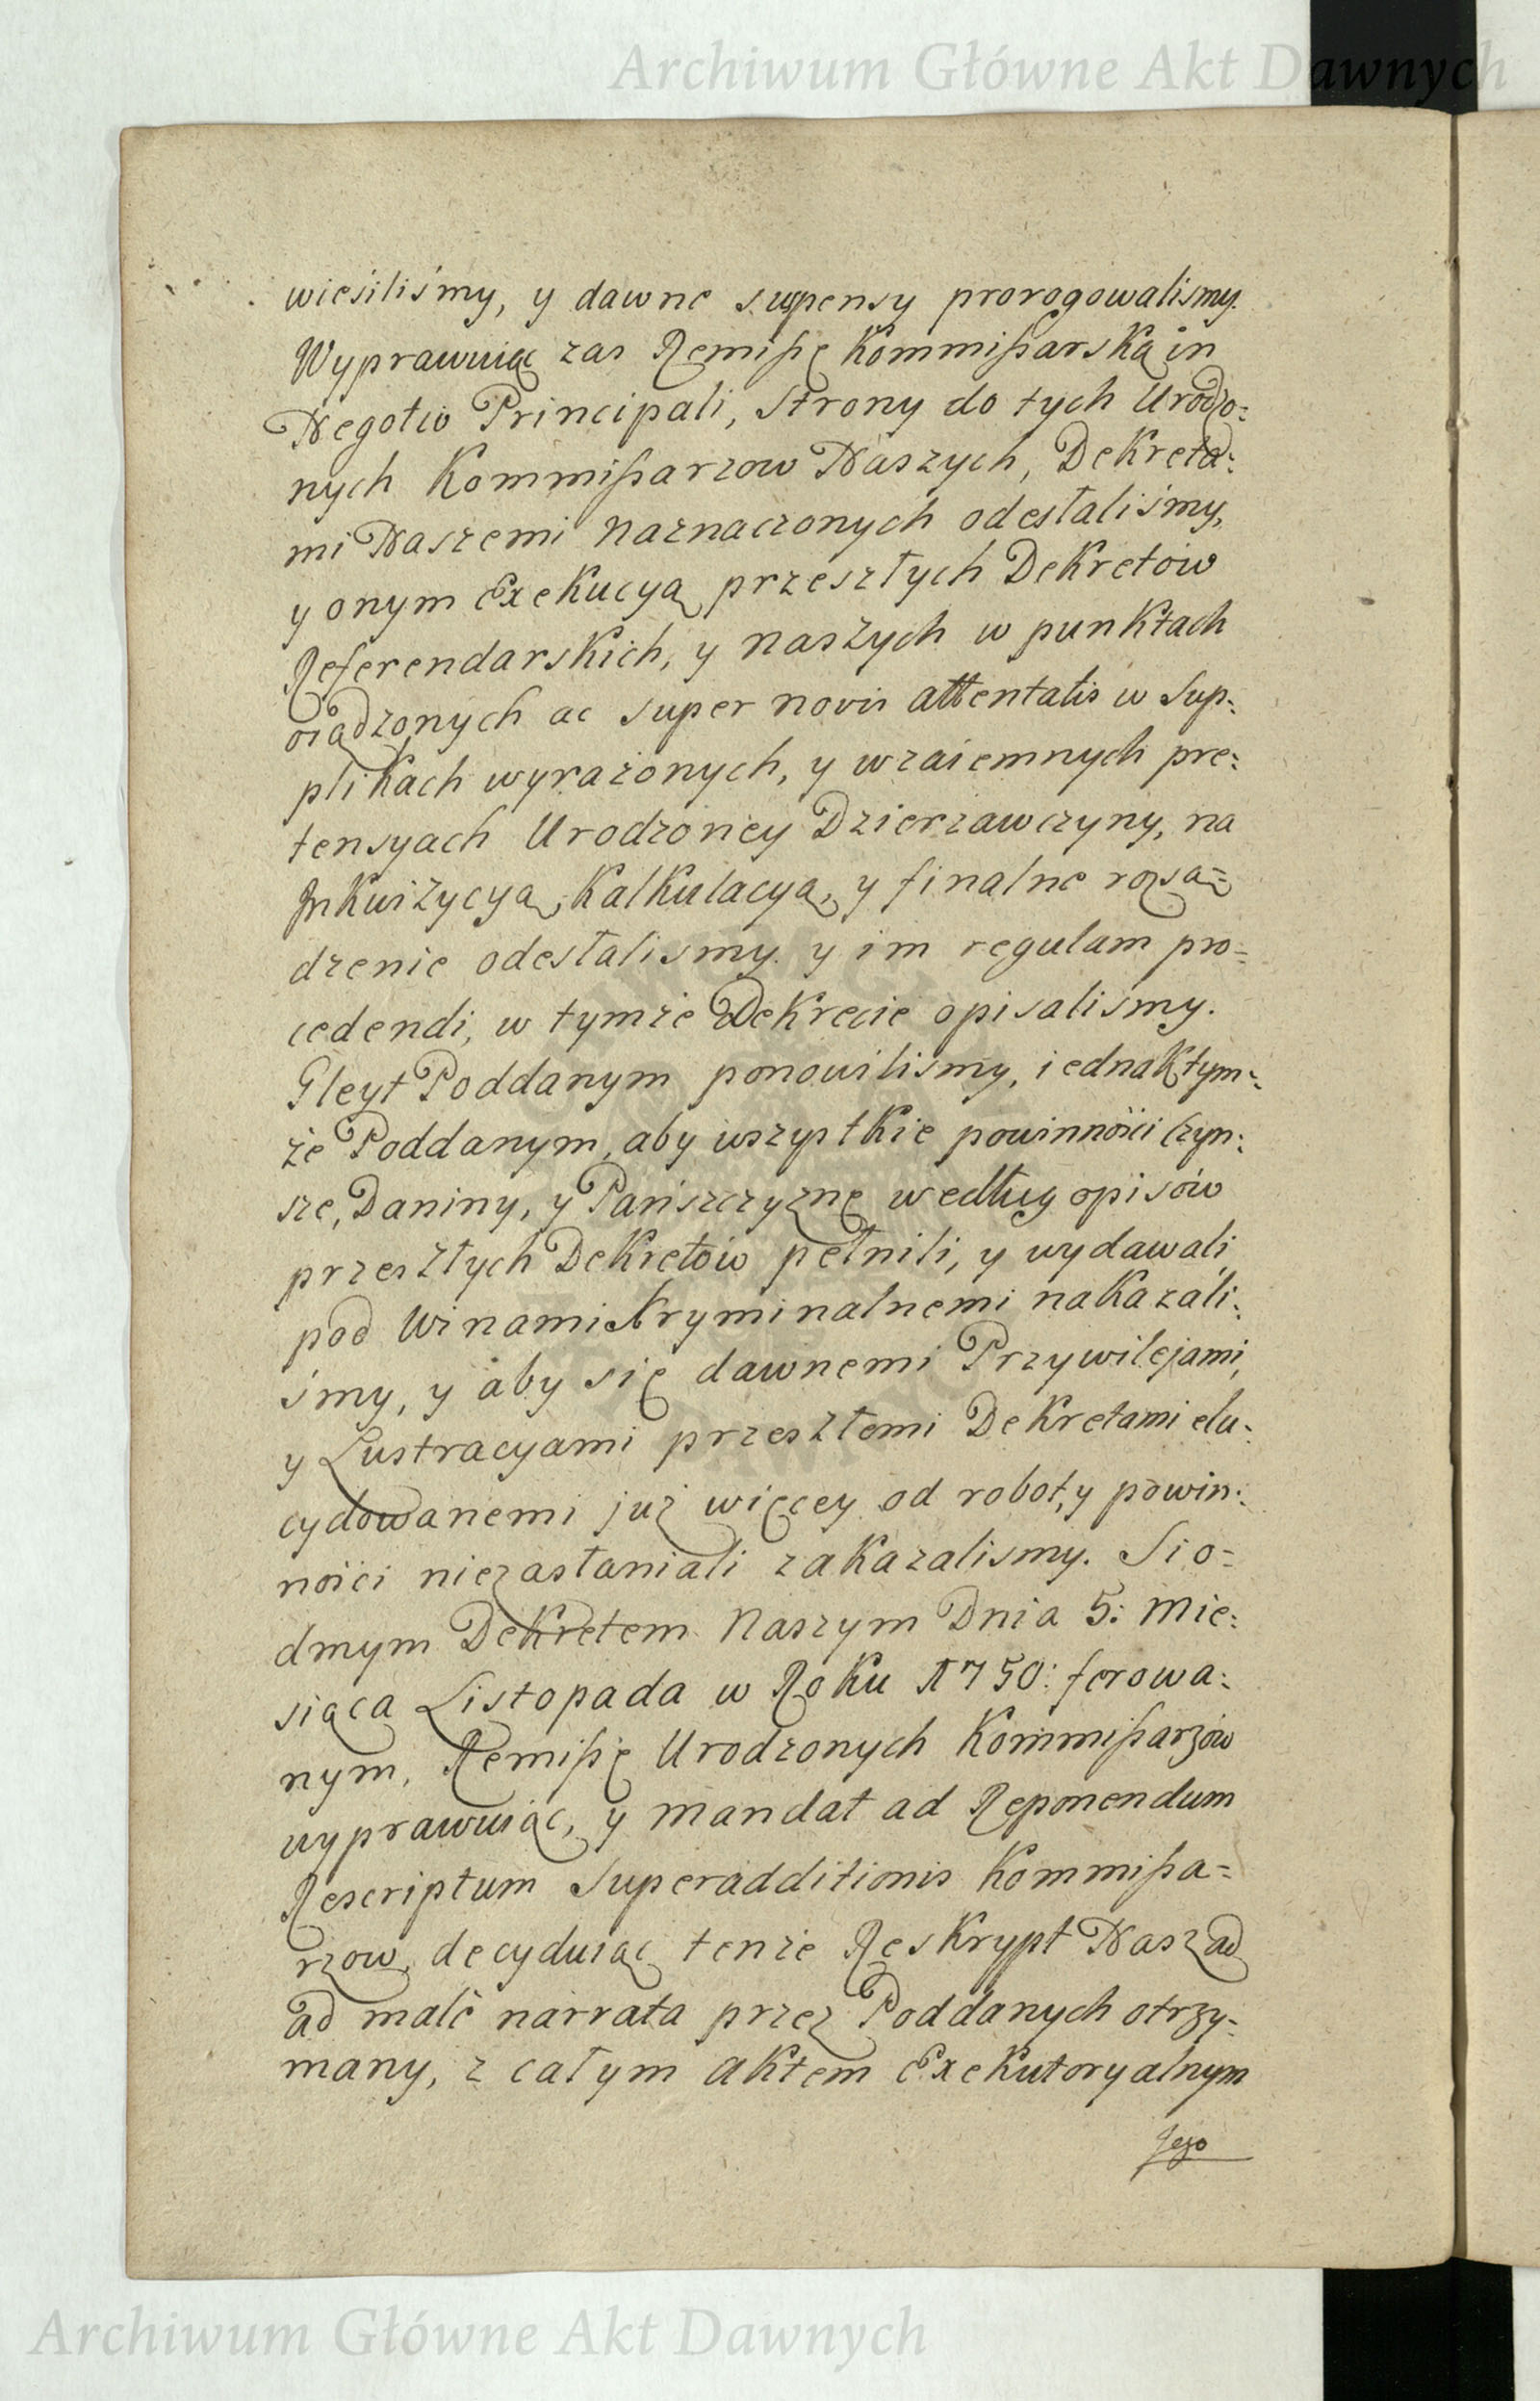 Archiwum Główne Akt Dawnych
wieśiliśmy, y dawne suspensy prorogowalismy.
Wyprawuiąc zas Remißę Kommißarską in
Negotio Principali, Strony do tych Urodzo:
nych Kommißarzow Naszych, Dekreta:
mi Naszemi naznaczonych odesłaliśmy,
y onym Exekucyą przeszłych Dekretów
Referendarskich, y naszych w punktach
osądzonych ac super novis attentatis w Sup:
plikach wyrażonych, y wzaiemnych pre:
tensyach Urodzoney Dzierzawczyny, na
Inkwizycyą, Kalkulacyą, y finalne rozsą=
dzenie odesłalismy. y im regulam pro=
cedendi, w tymże Dekrecie opisalismy.
Gleyt Poddanym ponowilismy, iednak tym:
że Poddanym, aby wszystkie powinności Czyn:
sze, Daniny, y Pańszczyznę według opisów
przeszłych Dekretów pełnili, y wydawali,
pod Winami Kryminalnemi nakazali:
śmy, y aby się dawnemi Przywilejami,
y Lustracyami przeszłemi Dekretami elu:
cydowanemi już więcey od robot, y powin:
ności niezasłaniali zakazalismy. Sio=
dmym Dekretem Naszym Dnia 5: Mie:
siąca Listopada w Roku 1750: ferowa:
nym, Remißę Urodzonych Kommißarzów
wyprawuiąc, y mandat ad Reponendum
Rescriptum Superadditionis Kommißa=
rzow, decyduiąc tenże Reskrypt Nasz ad
ad malè narrata przez Poddanych otrzy=
many, z całym aktem Exekutoryalnym
Jego
Archiwum Główne Akt Dawnych